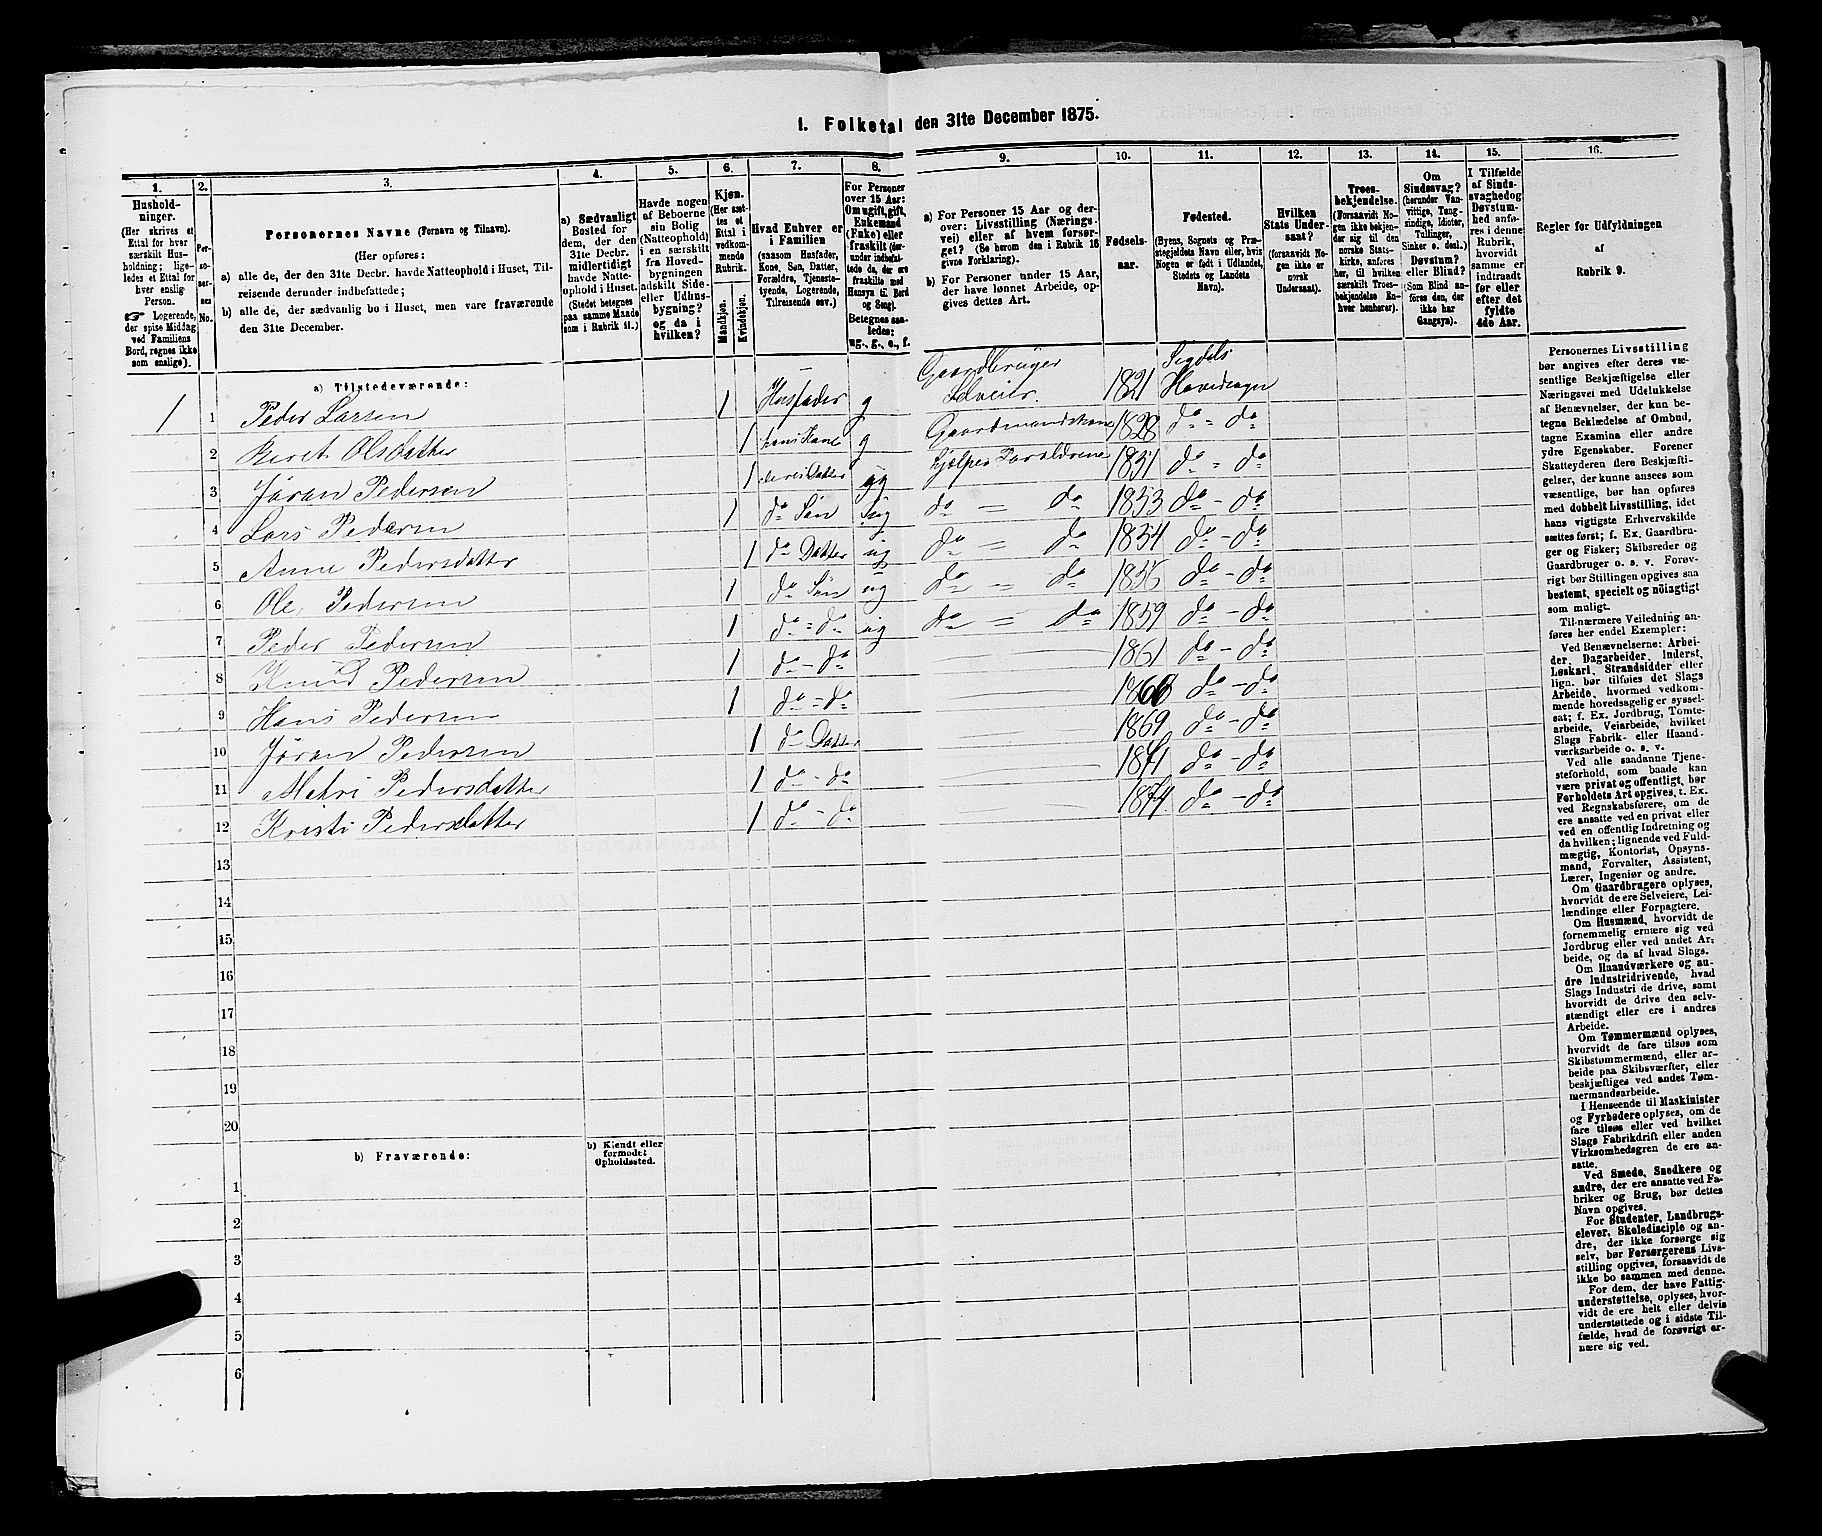 1. Folketal den 31te December 1875.
1. 2. 3. 4. 5. 6. 7. 8. 9. 10. 11. 12. 13. 14. 15. 16.
Hushold-
ninger.
(Her skrives et
Ettal for hver
særskilt Hus-
holdning; lige-
ledes et Ettal for
hver enslig
Person.
☞ Logerende,
der spise Middag
ved Familiens
Bord, regnes ikke
som enslige).
Per-
so-
ner-
nes
No.
Personernes Navne (Fornavn og Tilnavn).
(Her opføres:
a) alle de, der den 31te Decbr. havde Natteophold i Huset, Til-
reisende derunder indbefattede;
b) alle de, der sædvanlig bo i Huset, men vare fraværende
den 31te December.
a) Sædvanligt
Bosted for
dem, der den
31te Decbr.
midlertidigt
havde Natte-
ophold i Huset.
(Stedet betegnes
paa samme Maade
som i Rubrik 11.)
Havde nogen
af Beboerne
sin Bolig
(Natteophold)
i en særskilt
fra Hoved-
bygningen
adskilt Side-
eller Udhus-
bygning?
og da i
hvilken?
Kjøn.
(Her sæt-
tes et
Ettal i
vedkom-
mende
Rubrik.
Mandkjøn.
Kvindekjøn.
Hvad Enhver er
i Familien
(saasom Husfader,
Kone, Søn, Datter,
Forældre, Tjeneste-
tyende, Logerende,
Tilreisende osv.)
For Personer
over 15 Aar:
Om ugift, gift,
Enkemand
(Enke) eller
fraskilt (der-
under indbefat-
tede de, der ere
fraskilte med
Hensyn til Bord
og Seng).
Betegnes saa-
ledes:
ug., g., e., f.
a) For Personer 15 Aar og der-
over: Livsstilling (Nærings-
vei) eller af hvem forsør-
get? (Se herom den i Rubrik 16
givne Forklaring).
b) For Personer under 15 Aar,
der have lønnet Arbeide, op-
gives dettes Art.
Fødsels-
aar.
Fødested.
(Byens, Sognets og Præ-
stegjeldets Navn eller, hvis
Nogen er født i Udlandet,
Stedets og Landets
Navn).
Hvilken
Stats Under-
saat?
(forsaavidt No-
gen ikke er
norsk
Undersaat).
Troes-
bekjendelse.
(Forsaavidt No-
gen ikke bekjen-
der sig til den
norske Stats-
kirke, anføres
her, til hvilken
særskilt Troes-
bekjendelse En-
hver henhører).
Om
Sindssvag?
(herunder Van-
vittige, Tung-
sindige, Idioter,
Tullinger,
Sinker o. desl.)
Døvstum?
eller Blind?
(Som Blind an-
føres den, der
ikke har
Gangsyn).
I Tilfælde
af Sinds-
svaghed og
Døvstum-
hed anfø-
res i denne
Rubrik,
hvorvidt
samme er
indtraadt
før eller
efter det
fyldte
4de Aar.
Regler for Udfyldningen
af
Rubrik 9.
a) Tilstedeværende:
1 1 Peder Larsen 1 Husfader g Gaardbruger Selveier. 1821 Sigdals Hovedsogn
2 Beret Olsdatter 1 hans Kone g Gaardmandskone 1828 do = do
3 Jøran Pedersen 1 deres Datter ug hjelper Foreldrene 1851 do = do
4 Lars Pedersen 1 do Søn ug do = do 1853 do - do
5 Anne Pedersdatter 1 do Datter ug do = do 1854 do - do
6 Ole Pedersen 1 do Søn ug do = do 1856 do - do
7 Peder Pedersen 1 do = do ug do = do 1859 do - do
8 Knud Pedersen 1 do - do 1861 do - do
9 Hans Pedersen 1 do = do do - do
10 Jøran Pedersen 1 do Datter 1869 do - do
11 Pedersdatter 1 do - do 1871 do - do
12 Kristi Pedersdatter 1 do - do 1874 do - do
13
14
15
16
17
18
19
20
b) Fraværende:
b) Kjendt eller
formodet
Opholdssted.
1
2
3
4
5
6
Personernes Livsstilling
bør angives efter deres væ-
sentlige Beskjæftigelse eller
Næringsvei med Udelukkelse
af Benævnelser, der kun be-
tegne Beklædelse af Ombud,
tagne Examina eller andre
ydre Egenskaber. Forener
Skatteyderen flere Beskjæfti-
gelser, der kunne ansees som
væsentlige, bør han opføres
med dobbelt Livsstilling, idet
hans vigtigste Erhvervskilde
sættes først; f. Ex. Gaardbru-
ger og Fisker; Skibsreder og
Gaardbruger o. s. v. Forøv-
rigt bør Stillingen opgives saa
bestemt, specielt og nöiagtigt
som muligt.
Til nærmere Veiledning an-
føres her endel Exempler:
Ved Benævnelserne: Arbei-
der, Dagarbeider, Inderst,
Løskarl, Strandsidder eller
lign. bør tilføies det Slags
Arbeide, hvormed vedkom-
mende hovedsagelig er syssel-
sat; f. Ex. Jordbrug, Tomte-
arbeide, Veiarbeide, hvilket
Slags Fabrik- eller Haand-
værksarbeide o. s. v.
Ved alle saadanne Tjene-
steforhold, som baade kan
være privat og offentligt, bør
Forholdets Art opgives, t. Ex.
ved Regnskabsførere, om de
ere ansatte ved en privat eller
ved en offentlig Indretning og
da hvilken; lignende ved Fuld-
mægtig, Kontorist, Opsyns-
mand, Forvalter, Assistent,
Lærer, Ingeniør og andre.
Om Gaardbrugere oplyses,
hvorvidt de ere Selveiere, Lei-
lændinge eller Forpagtere.
Om Husmænd, hvorvidt de
fornemmelig ernære sig ved
Jordbrug eller ved andet Ar-
beide, og da af hvad Slags.
Om Haandværkere og an-
dre Industridrivende, hvad
Slags Industri de drive, samt
hvorvidt de drive den selv-
stændigt eller ere i andres
Arbeide.
Om Tømmermænd oplyses,
hvorvidt de fare tilsøs som
Skibstømmermænd, eller ar-
beide paa Skibsværfter, eller
beskjæftiges ved andet Tøm-
mermandsarbeide.
I Henseende til Maskinister
og Fyrbødere oplyses, om de
fare tilsøs eller ved hvilket
Slags Fabrikdrift eller anden
Virksomhedsgren de ere an-
satte.
Ved Smede, Snedkere og
andre, der ere ansatte ved Fa-
briker og Brug, bør dettes
Navn opgives.
For Studenter, Landbrugs-
elever, Skoledisciple og an-
dre, der ikke forsørge sig
selv, bør Forsørgerens Livs-
stilling opgives, forsaavidt de
ikke bo sammen med denne.
For dem, der have Fattig-
understøttelse, oplyses, hvor-
vidt de ere helt eller delvis
understøttede og i sidste Til-
fælde, hvad de forøvrigt er-
nære sig ved.